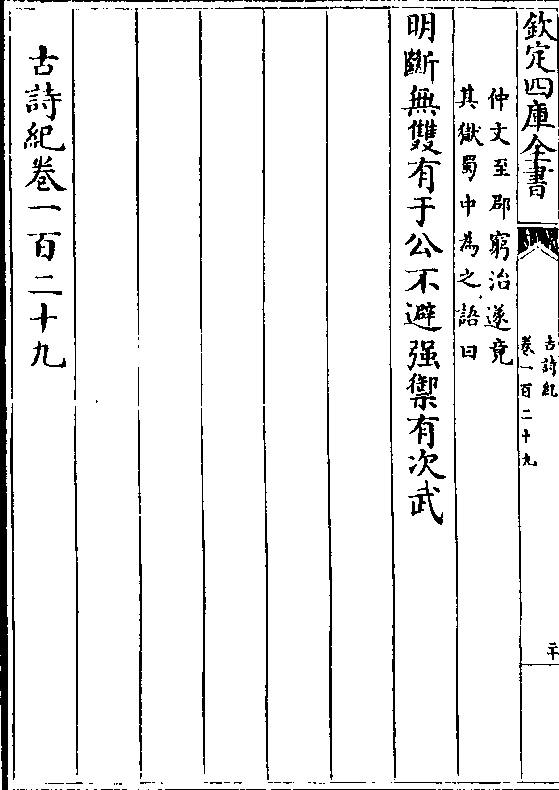 欽定四庫全書
古詩紀
卷一百二十九
二十
仲文至郡窮治遂竟
其獄蜀中為之語曰
明斷無雙有于公不避强禦有次武
古詩紀卷一百二十九